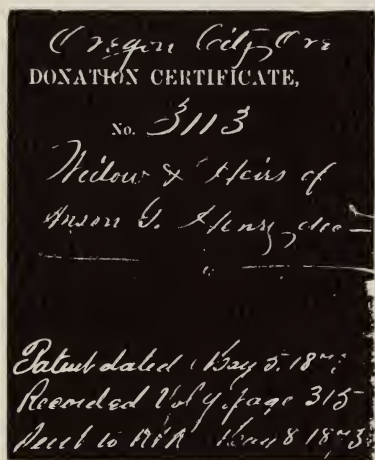 Oregon City, Ore
DONATION CERTIFICATE,
No. 3113
Widow & Heirs of
Anson G. Henry, dec
Patent dated May 5. 18
Recorded Vol page 315
Sent to 8 18